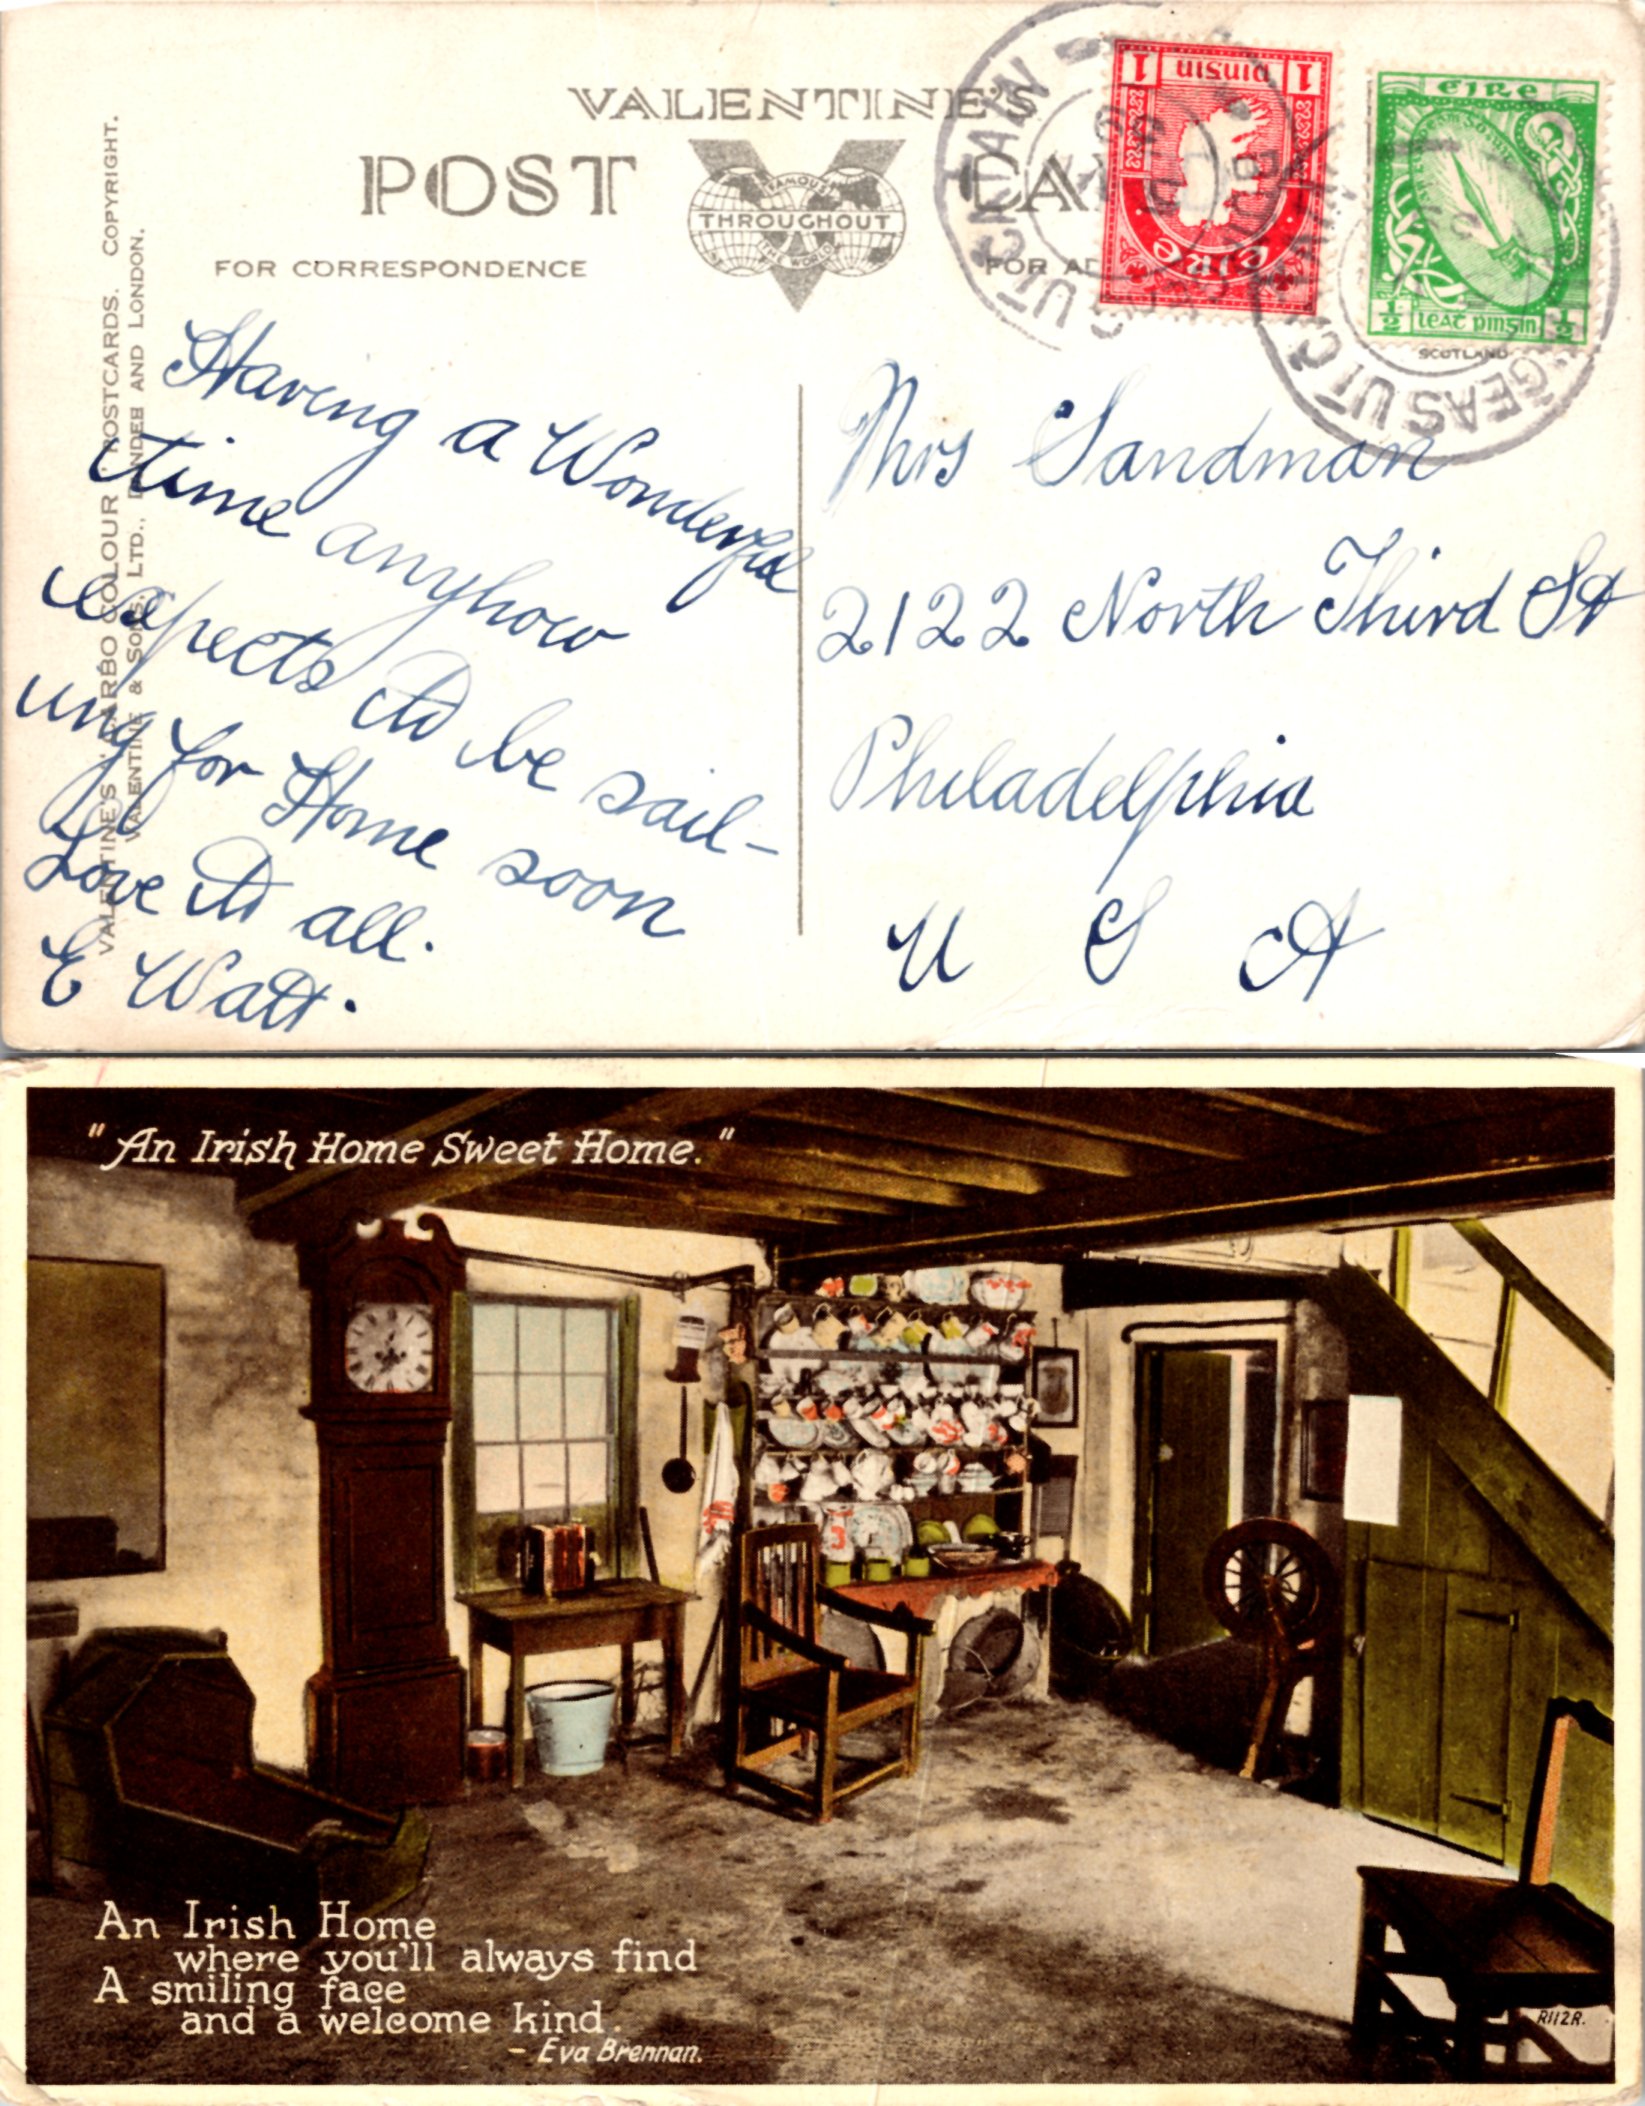 VALENTINE'S
POST CARD
FAMOUS
THROUGHOUT
THE WORLD
FOR CORRESPONDENCE
FOR AD
VALENTINE'S "CARBO COLOUR" POSTCARDS. COPYRIGHT.
VALENTINE & SONS, LTD., DUNDEE AND LONDON.
SCOTLAND
1 pinsin 1
éire
éire
1/2 leat pinsin 1/2
Having a Wonderful
time anyhow
expects to be sail-
ing for Home soon
Love to all.
E Watt.
Mrs Sandman
2122 North Third St
Philadelphia
U S A
"An Irish Home Sweet Home."
An Irish Home
where you'll always find
A smiling face
and a welcome kind.
- Eva Brennan.
R112R.